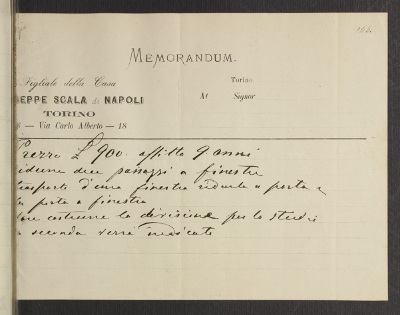 MEMORANDUM.
Figliale della Casa
EPPE SCALA di NAPOLI
TORINO
— Via Carlo Alberto — 18
Torino
Al Signor
Prezzo L 900. affitto 9 anni
due passaggi a finestre
trasporto d'una finestra ridurla a porta e
porta a finestra
costruire la divisione per lo studio
seconda verrà indicato